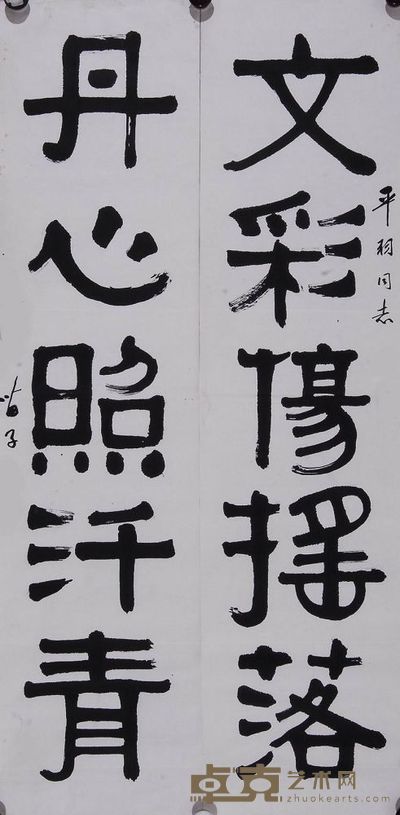 文彩傷搖落
平羽同志
丹心照汗青
卓克艺术网
zhuokearts.com